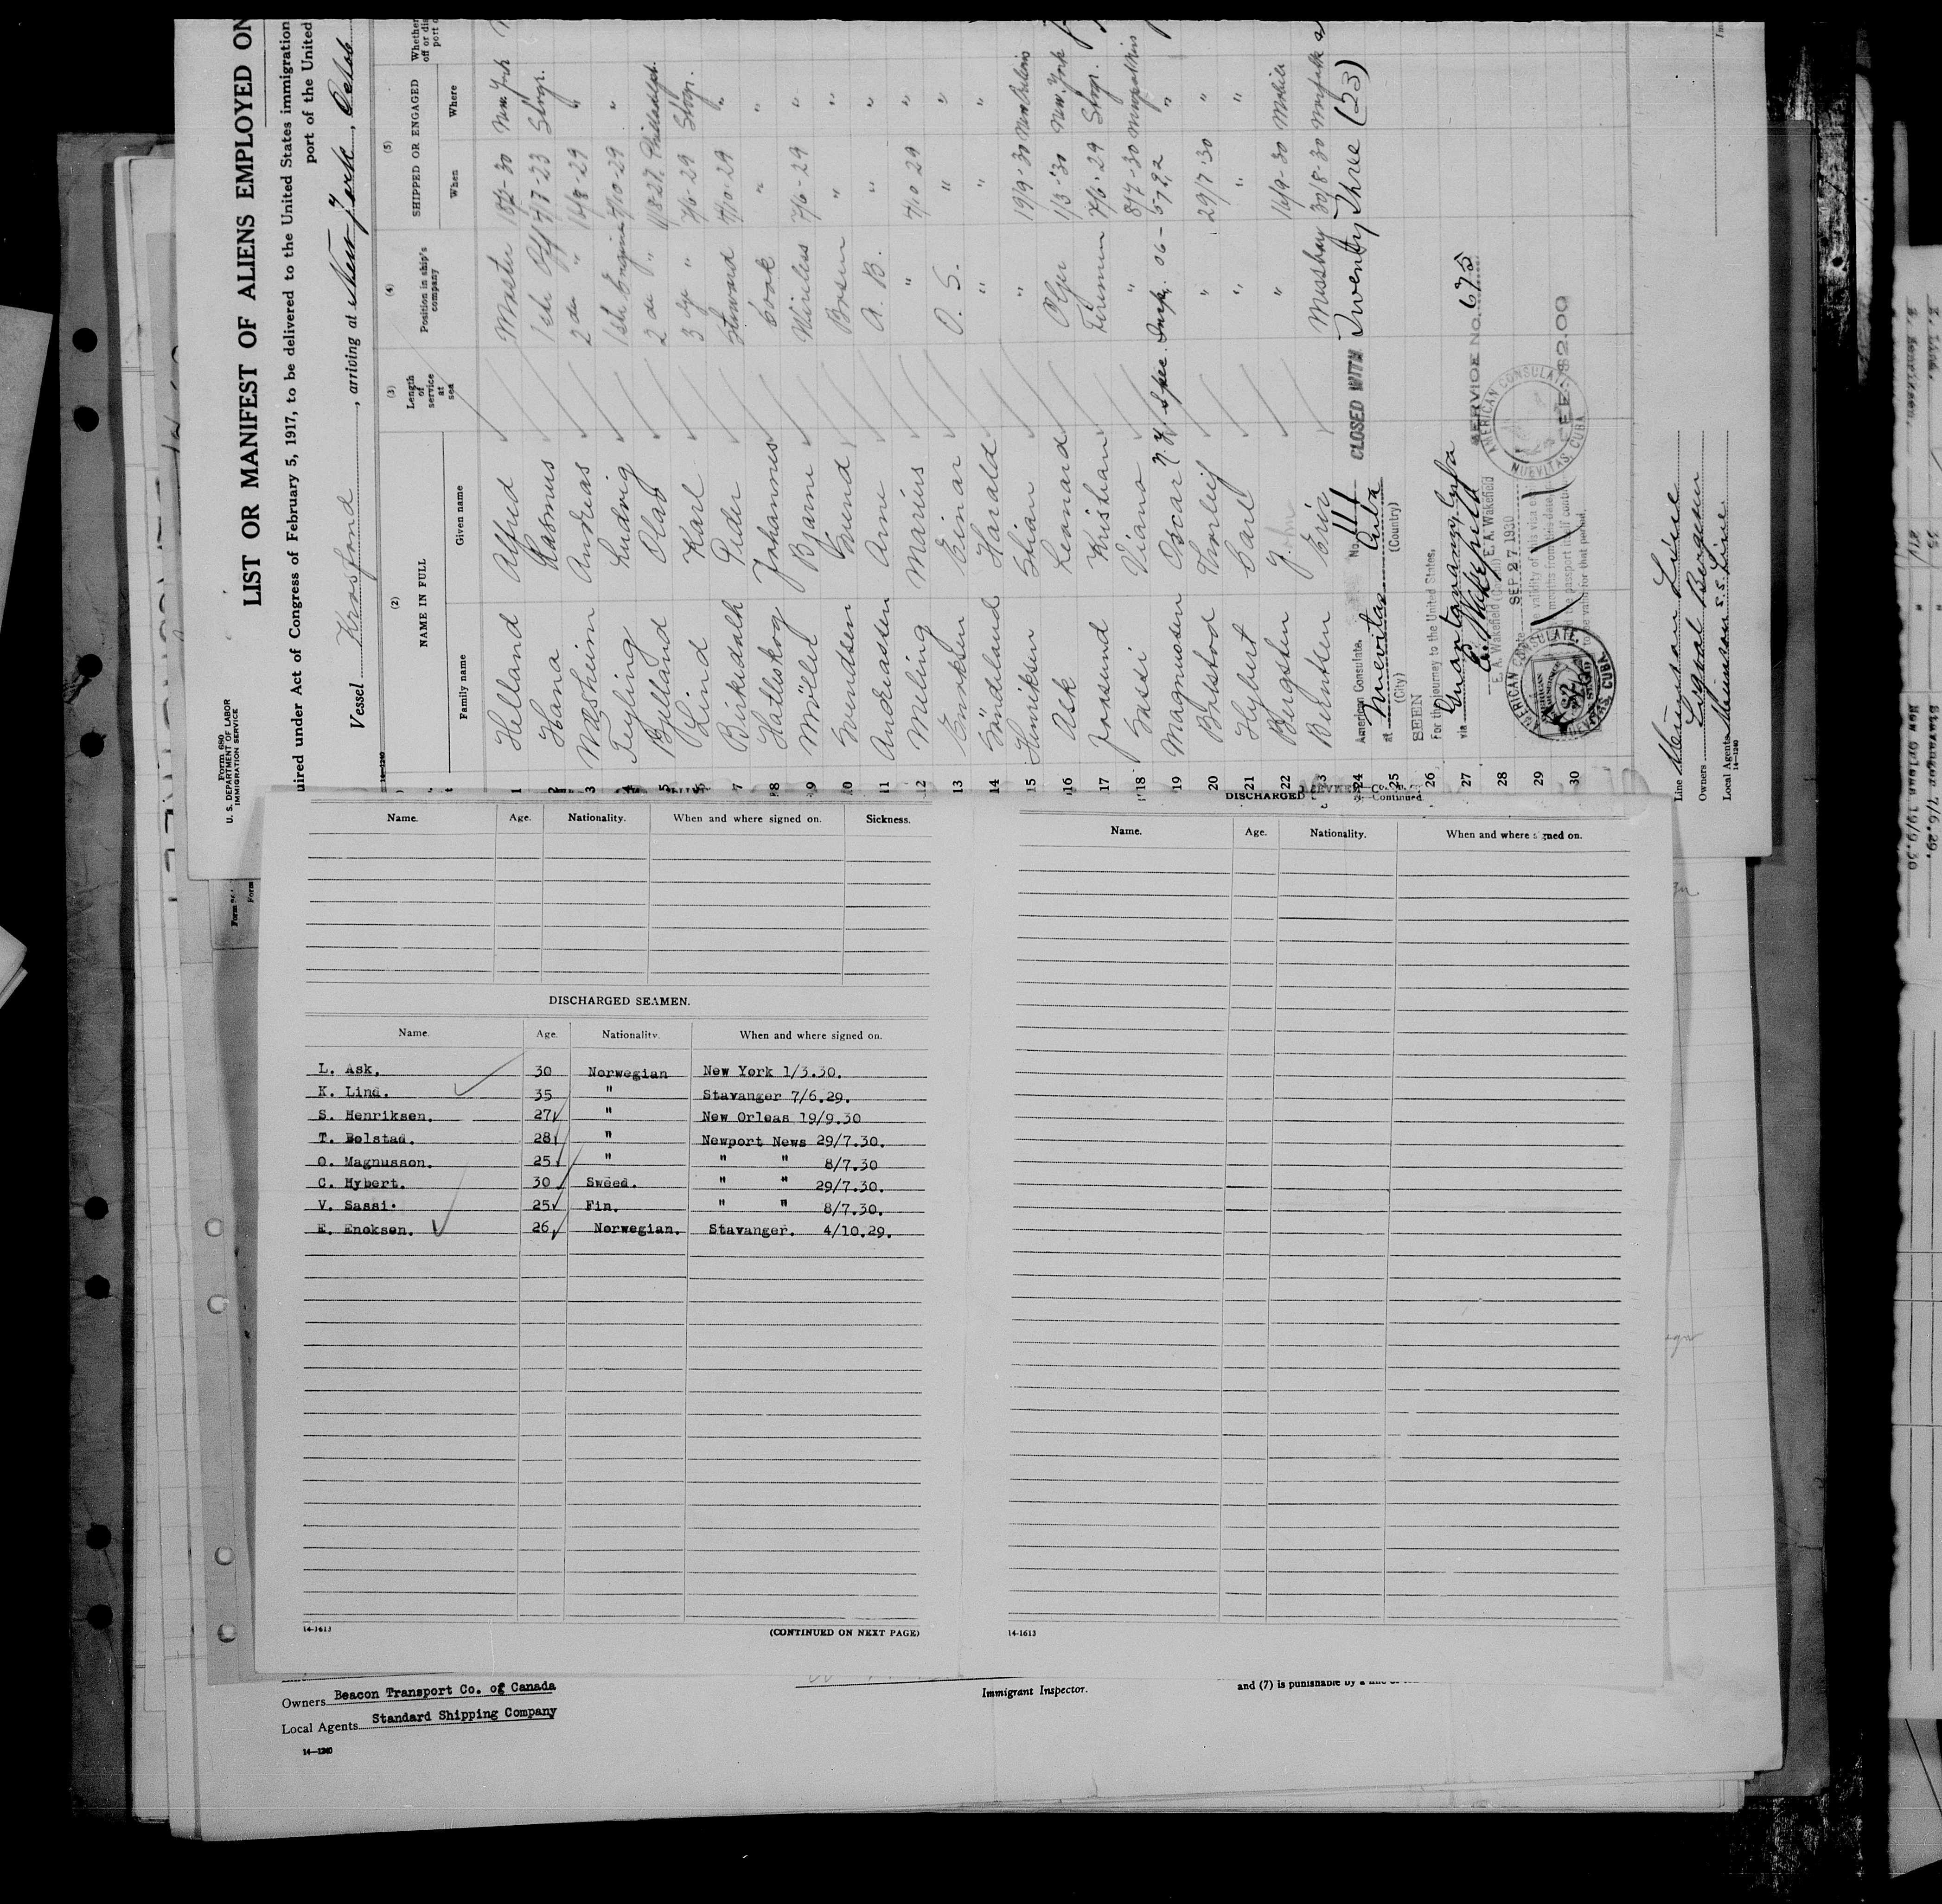 Form 680
U. S. DEPARTMENT OF LABOR
IMMIGRATION SERVICE
LIST OR MANIFEST OF ALIENS EMPLOYED ON
uired under Act of Congress of February 5, 1917, to be delivered to the United States immigration
port of the United
Vessel Krosfond, arriving at New York, Octob
14-1240
(2) (3) (4) (5)
NAME IN FULL Length of service at sea Position in ship's company SHIPPED OR ENGAGED Whether
Family name Given name When Where
1 Helland Alfred Master 18/7-30 New York
2 Hana Rasmus 1ste Off 4/7-23 Stvgr.
3 Andreas 2 de " 14/8-29 "
4 Feyling Ludvig 1ste Engine 4/10-29 "
5 Bjelland Olav 2 de " 11/8 27. Philadelph.
6 Lind Karl 3 dje " 7/6-29 Stvgr.
7 Birkedalh Peder Steward 4/10-29 "
8 Hatleskog Johannes Cook " "
9 Möller Bjarne Wireless 7/6-29 "
10 Svendsen Svend Bosen " "
11 Andreassen Arne A. B. " "
12 Meling Marius " 4/10 29 "
13 Enoksen Einar O. S. " "
14 Söndeland Harald " " "
15 Henriksen Stian " 19/9-30 New Orleans
16 Ask Leonard Oljer 1/3-30 New York
17 Jossund Kristian Firemen 7/6-29 Stvgr.
18 Sassi Viano " 8/7-30
19 Magnussen Oscar
20 Bolstod Thorleif " 29/7-30 "
21 Hybert Carl " " "
22 Bergsten " 14/9-30 Mobile
23 Berntsen Eric Messboy 30/8-30
24
25
26
27
28
29
30
CLOSED WITH Twenty Three (23)
American Consulate, No. 111
at Nuevitas Cuba
(City) (Country)
SEEN
For the journey to the United States,
via Guantanamo, Cuba
E. A. Wakefield
E. A. Wakefield
SEP 27 1930
SERVICE NO. 675
FEE: $2.00
AMERICAN CONSULATE, NUEVITAS, CUBA
AMERICAN CONSULATE, NUEVITAS, CUBA.
Line Munson Line
Owners Sigval Bergesen
Local Agents Munson S.S. Line
14-1240
Name. Age. Nationality. When and where signed on. Sickness.
DISCHARGED SEAMEN.
Name. Age. Nationality. When and where signed on.
L. Ask. 30 Norwegian New York 1/3.30.
K. Lind. 35 " Stavanger 7/6.29.
S. Henriksen. 27 " New Orleas 19/9.30
T. Bolstad. 28 " Newport News 29/7.30.
O. Magnusson. 25 " " " 8/7.30
C. Hybert. 30 Sweed. " " 29/7.30.
V. Sassi. 25 Fin. " " 8/7.30.
E. Enoksen. 26 Norwegian. Stavanger. 4/10.29.
14-1613
(CONTINUED ON NEXT PAGE)
DISCHARGED
Continued.
Name. Age. Nationality. When and where signed on.
14-1613
Owners Beacon Transport Co. of Canada
Local Agents Standard Shipping Company
14-1240
Immigrant Inspector.
and (7) is punishable by a
Stavanger 7/6.29.
New Orleas 19/9.30